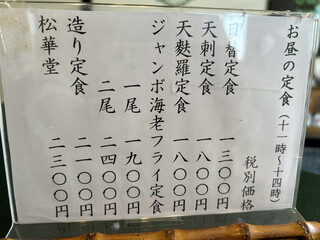 お昼の定食(十一時〜十四時)
税別価格
日替定食 一三〇〇円
天刺定食 一八〇〇円
天麩羅定食 一八〇〇円
ジャンボ海老フライ定食
一尾 一九〇〇円
二尾 二四〇〇円
造り定食 二一〇〇円
松華堂 二三〇〇円